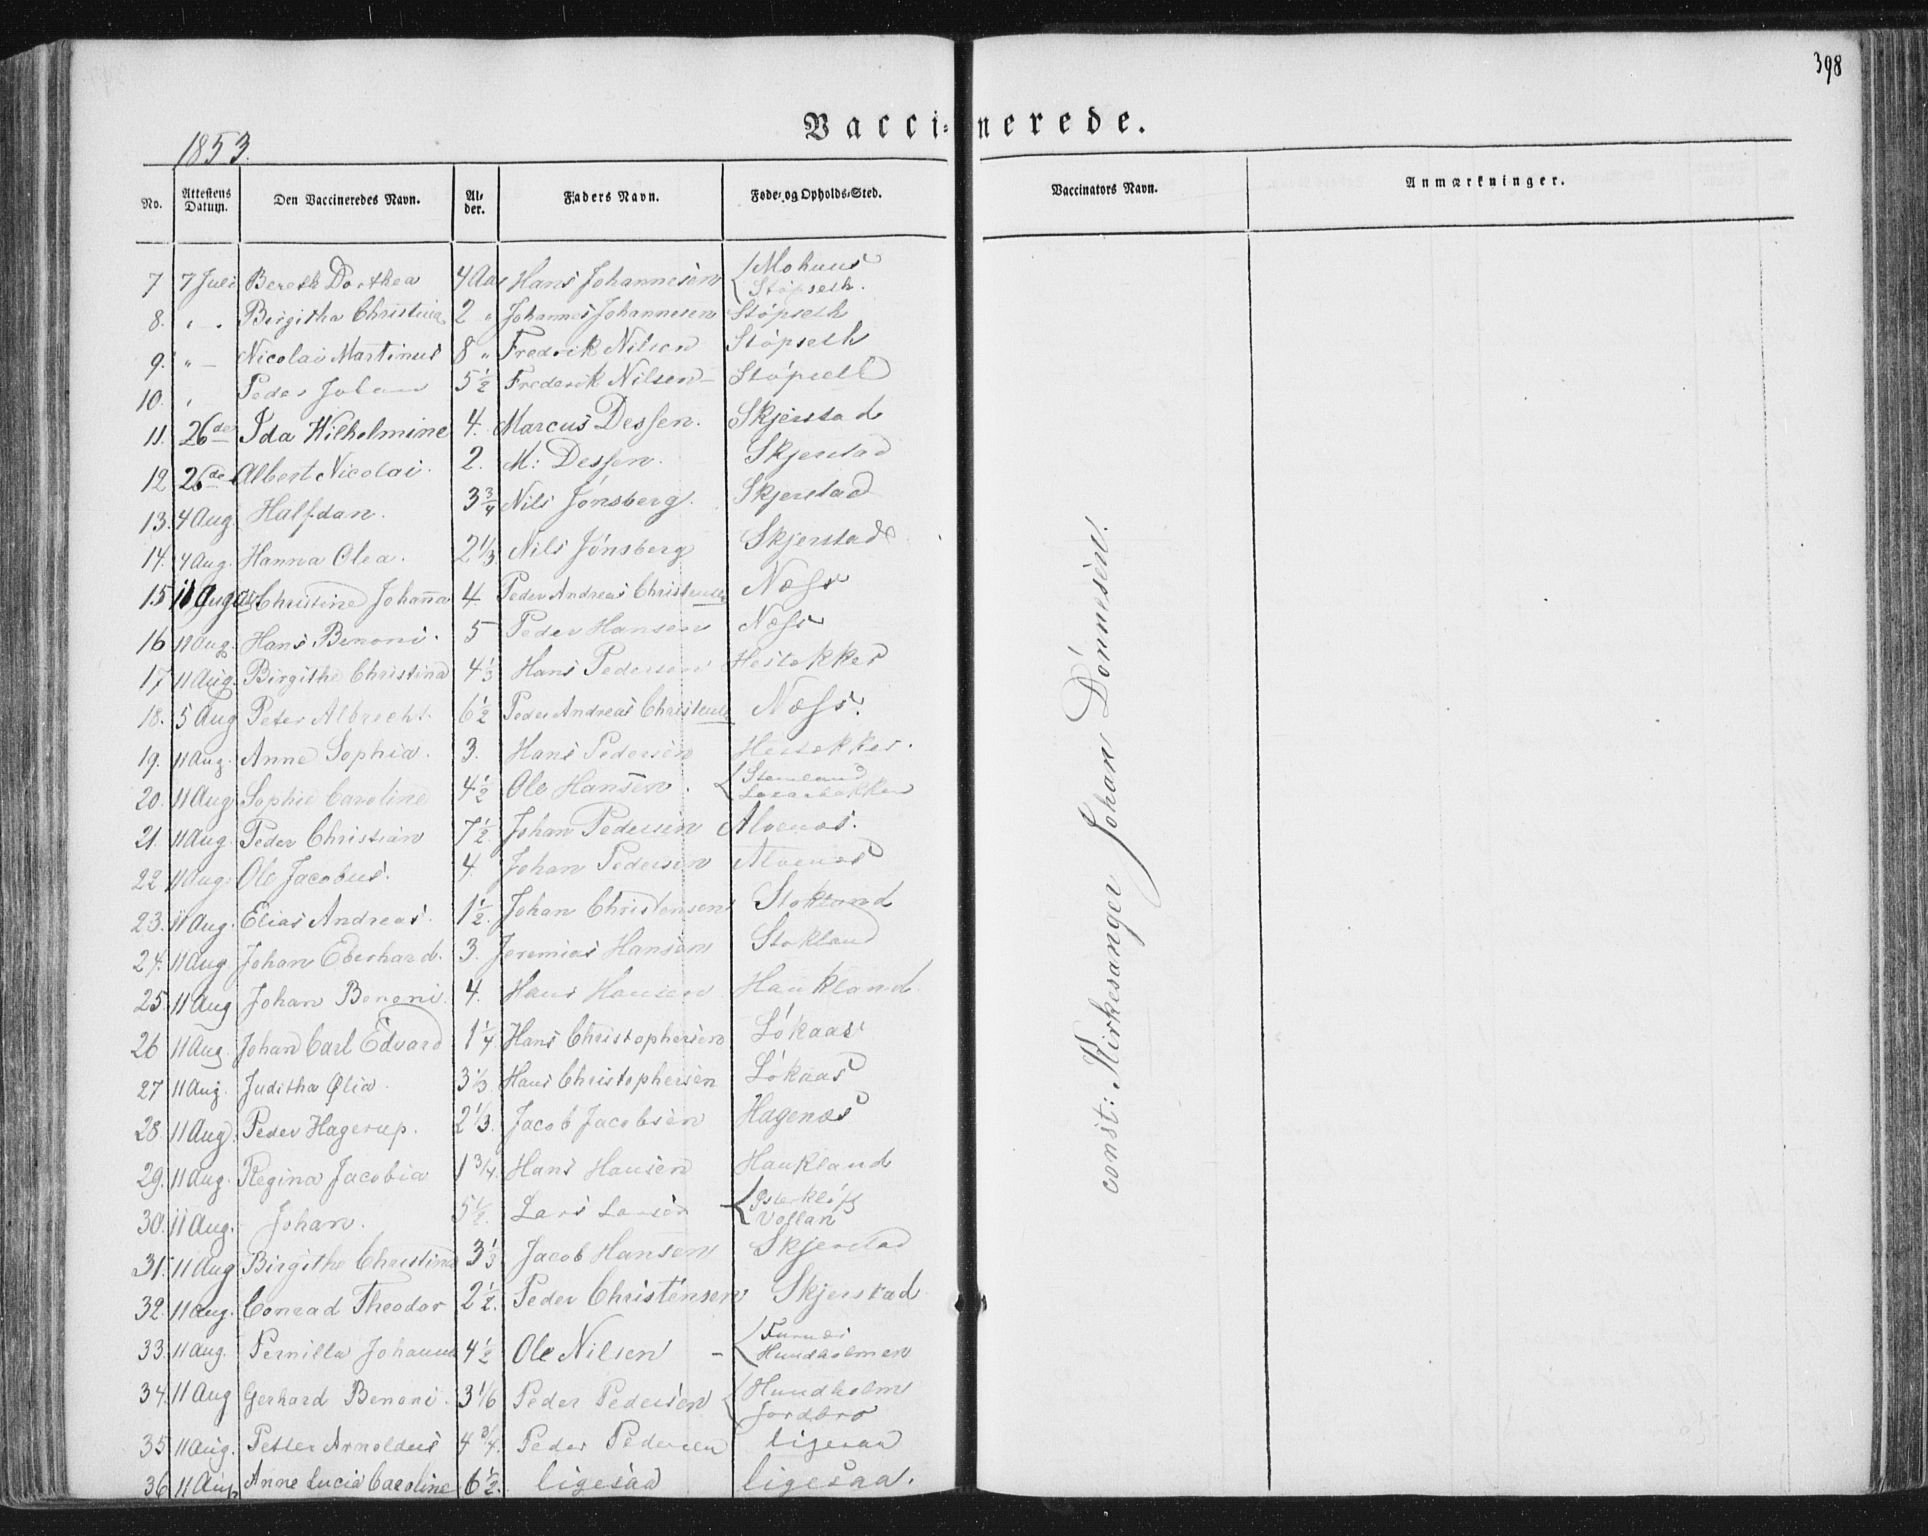 398
Vaccinerede.
1853.
No. Attestens Datum. Den Vaccineredes Navn. Alder. Faders Navn. Føde- og Opholds-Sted. Vaccinators Navn. Anmærkninger.
7 7 Juli Bereth Dorthea 4 Aar Hans Johannesen Mohuus Støpseth.
8. " - Birgitha Christina 2 " Johannes Johannesen Støpseth
9. " - Nicolai Martinus 8 " Fredrik Nilsen Støpseth
10. " Peder Johan 5 1/2 Frederik Nilsen - Støpseth
11. 26de Ida Wilhelmine 4. Marcus Dessen. Skjerstad
12 26de Albert Nicolai. 2. M: Dessen. Skjerstad
13. 4 Aug. Halfdan. 3 3/4 Nils Jønsberg. Skjerstad
14. 4 Aug. Hanna Olea. 2 1/3 Nils Jønsberg Skjerstad
15 11 Aug Christine Johanna 4. Peder Andreas Christensen Næss
16 11 Aug. Hans Benoni. 5 Peder Hansen Næss
17 11 Aug. Birgithe Christina 4 1/3 Hans Pedersen Hestekker
18. 5 Aug Peter Albrecht. 6 1/2 Peder Andreas Christensen Næss.
19. 11 Aug. Anne Sophia. 3. Hans Pedersen Hestekker.
20. 11 Aug Sophie Caroline 4 1/2 Ole Hansen.
21. 11 Aug. Peder Christian 7 1/2 Johan Pedersen Alvenes.
22 11 Aug: Ole Jacobus. 4. Johan Pedersen Alvenes
23. 11 Aug. Elias Andreas. 1 1/2. Johan Christensen Stokland
24. 11 Aug Johan Eberhard. 3. Jeremias Hansen Stokland
25. 11 Aug Johan Benoni 4. Hans Hansen Haukland
26 11 Aug. Johan Carl Edvard 1 1/4 Hans Christophersen Løkaas
27 11 Aug. Juditha Olia. 3 1/3. Hans Christophersen Løkaas
28. 11 Aug. Peder Hagerup. 2 1/3. Jacob Jacobsen Hagenæs
29. 11 Aug. Regina Jacobia 1 3/4. Hans Hansen Haukland
30. 11 Aug. Johan. 5 1/2. Lars Larsen Østerkløft Vollan
31. 11 Aug Birgithe Christina 3 1/3 Jacob Hansen Skjerstad
32. 11 Aug. Conrad Theodor 2 1/2. Peder Christensen Skjerstad
33. 11 Aug. Pernilla Johanna 4 1/2 Ole Nilsen - Furnes Hundholmen
34. 11 Aug Gerhard Benoni. 3 1/6 Peder Pedersen Hundholm Jordbro
35 11 Aug. Petter Arnoldus 4 3/4. Peder Pedersen ligesaa
36 11 Aug Anne Lucia Caroline 6 1/2. ligesaa ligesaa.
const: Kirkesanger Johan Dønnesen.